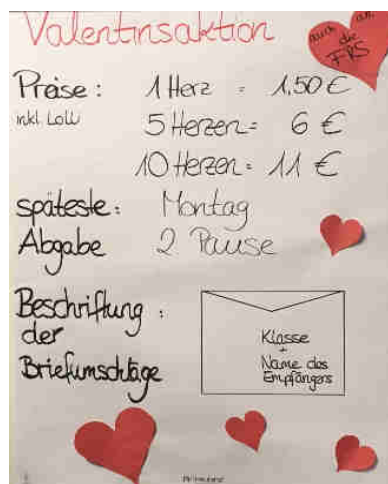 Valentinsaktion
auch an
die
FRS
Preise: 1 Herz = 1,50 €
inkl. Lolli 5 Herzen = 6 €
10 Herzen = 11 €
späteste: Montag
Abgabe 2 Pause
Beschriftung :
der
Briefumschläge
Klasse
+
Name des
Empfängers